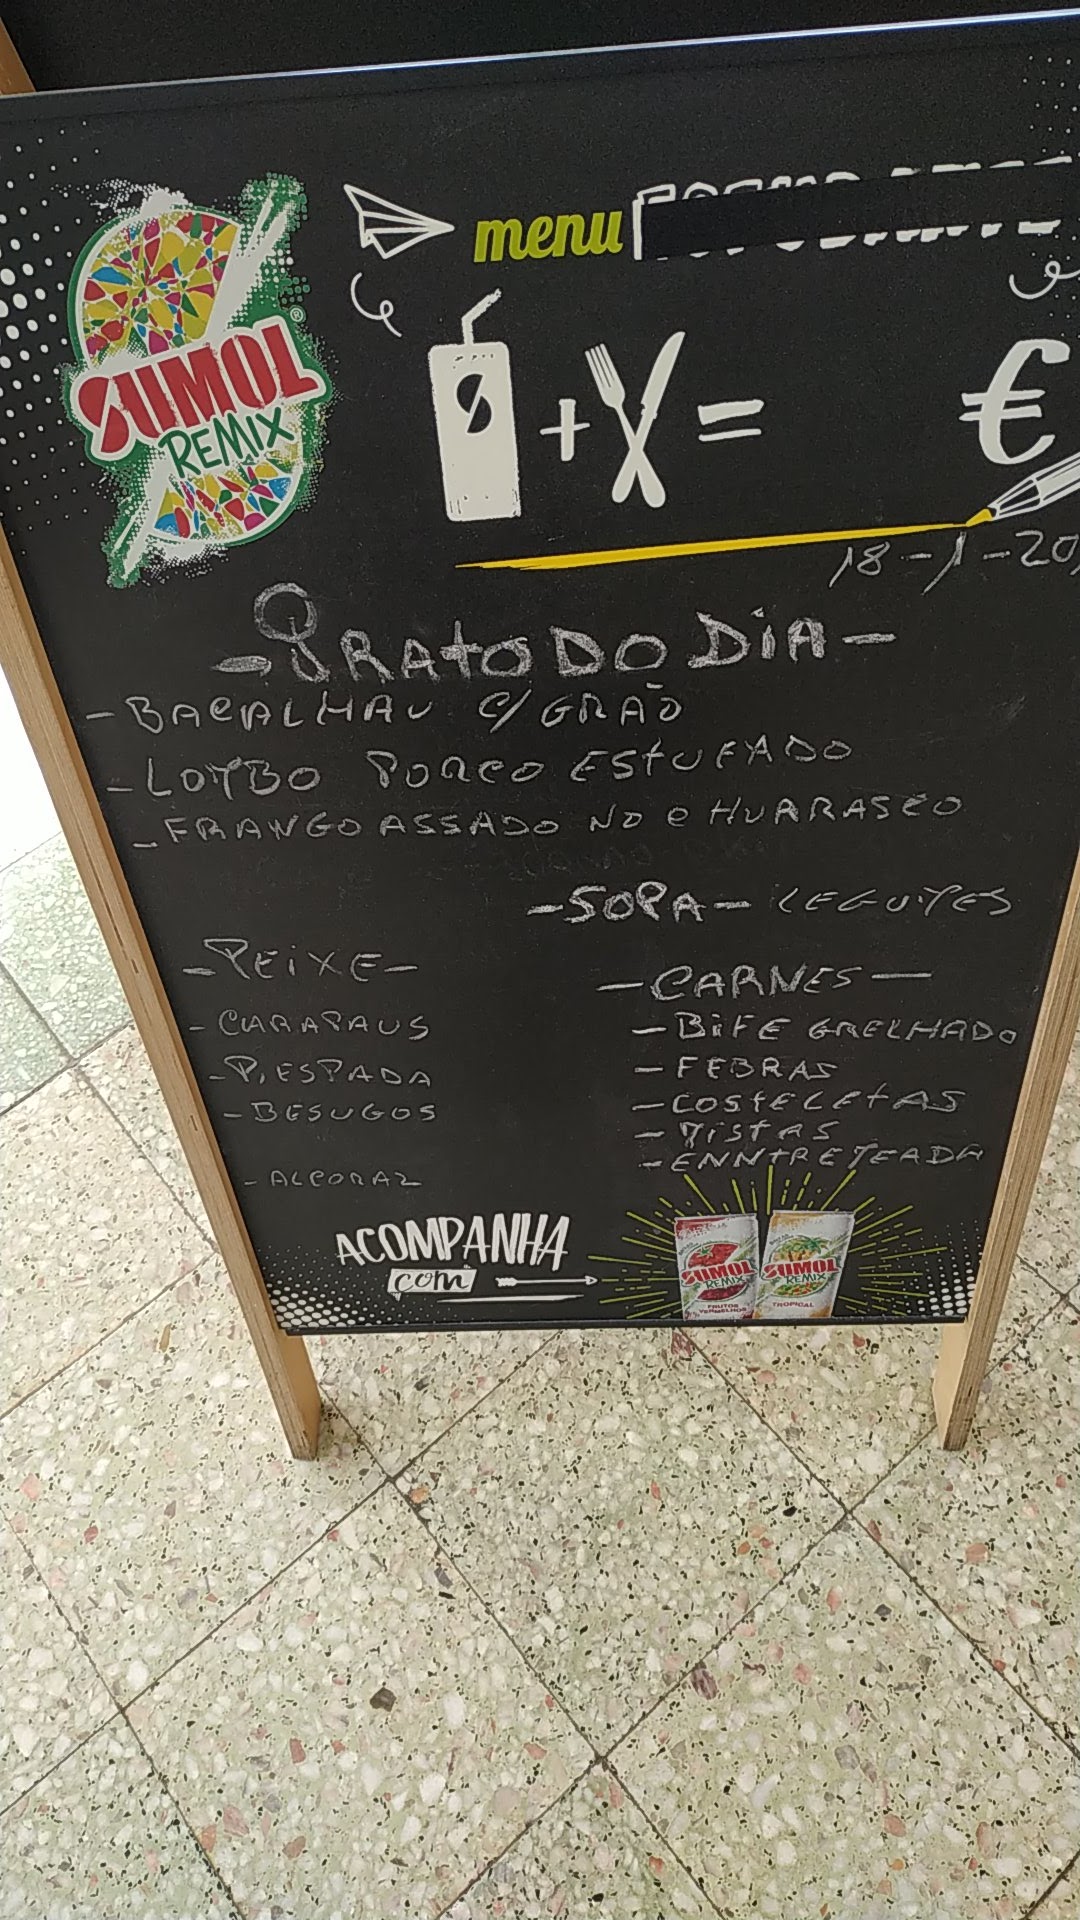 SUMOL
REMIX
®
menu
+ = €
18-1-20
- PRATO DO DIA -
- BACALHAU C/ GRÃO
- LOMBO PORCO ESTUFADO
- FRANGO ASSADO NO CHURRASCO
- SOPA - LEGUMES
- PEIXE -
- CARAPAUS
- P. ESPADA
- BESUGOS
- ALCORAZ
- CARNES -
- BIFE GRELHADO
- FEBRAS
- COSTELETAS
- MISTAS
- ENNTREMEADA
ACOMPANHA
com
SUMOL
REMIX
FRUTOS
VERMELHOS
SUMOL
REMIX
TROPICAL